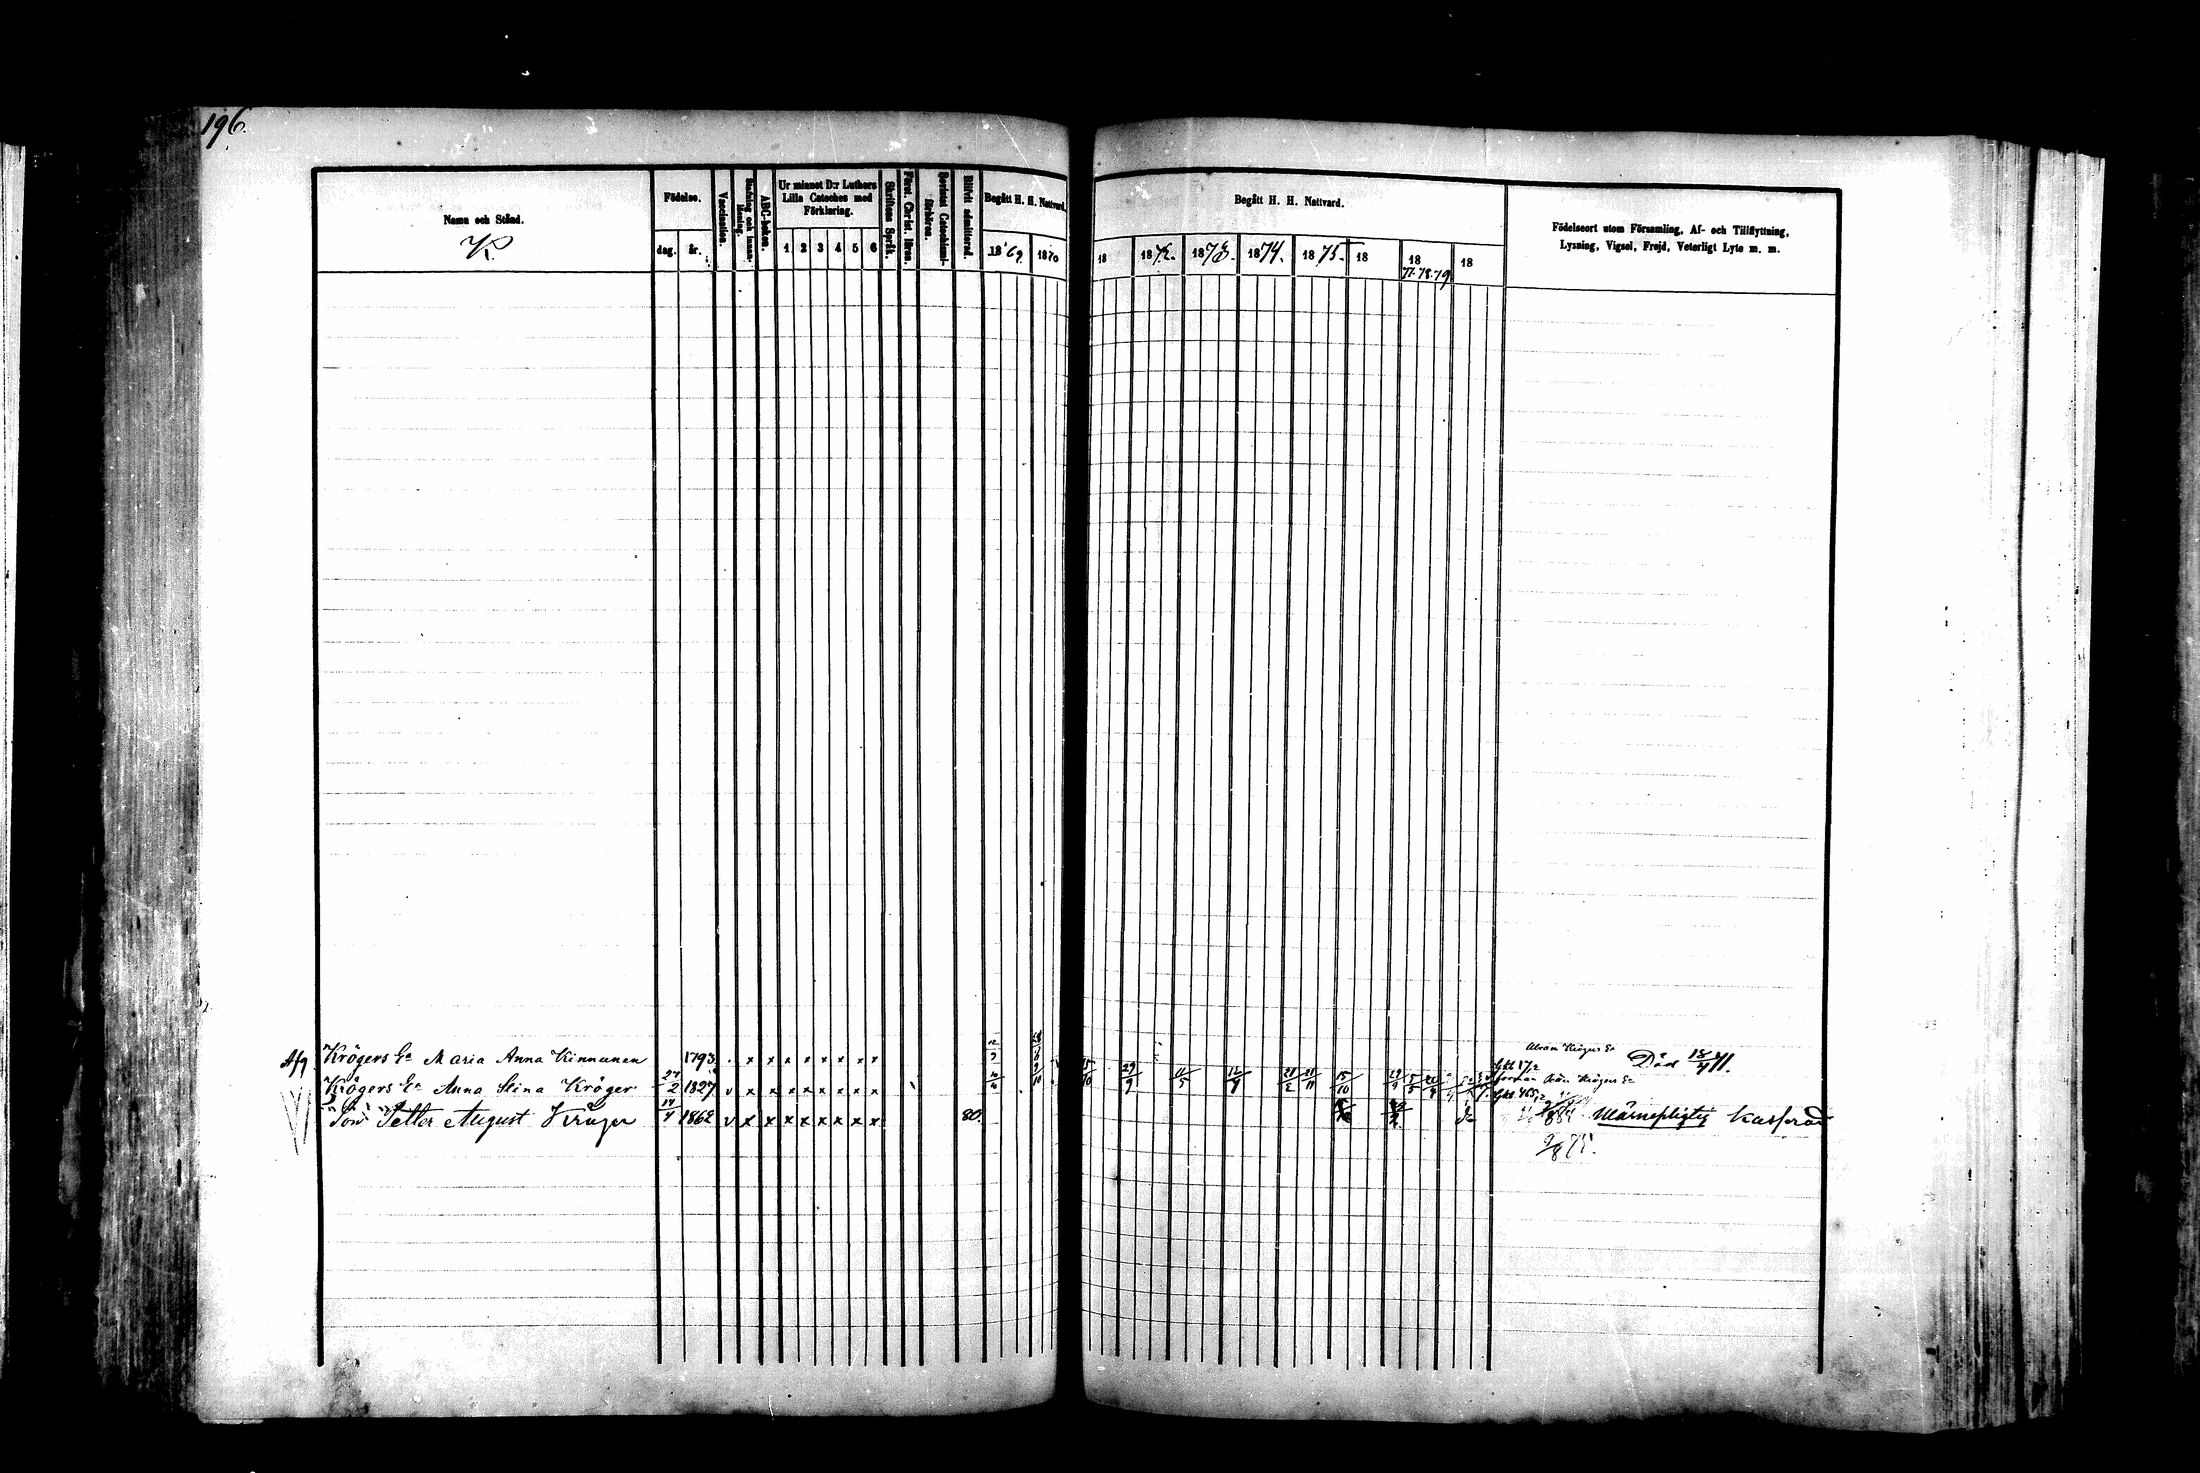 196.
Namn och Stånd.
K
Födelse.
dag. år.
Vaccination.
Stafning och innan-läsning.
ABC-boken.
Ur minnet D:r Luthers Lilla Cateches med Förklaring.
1 2 3 4 5 6
Skriftens Språk.
Först. Christ. läran.
Bevistat Catechismi-förhören.
Blifvit admitterad.
Begått H. H. Nattvard.
1869 1870
Begått H. H. Nattvard.
18 1872. 1873. 1874. 1875. 18 18 77.78.79 18
Födelseort utom Församling, Af- och Tillflyttning,
Lysning, Vigsel, Frejd, Veterligt Lyte m. m.
Afg. Krögers Ea Maria Anna Kinnunen 1793. x x x x x x x x Död 18/4 71.
Krögers Ea Anna Stina Kröger 27/2 1827 v x x x x x x x x 29/9 11/5 12/4
Son Petter August Kröger 17/4 1862 v x x x x x x x x 80. Wärnepligtig Kasserad
9/8 75.